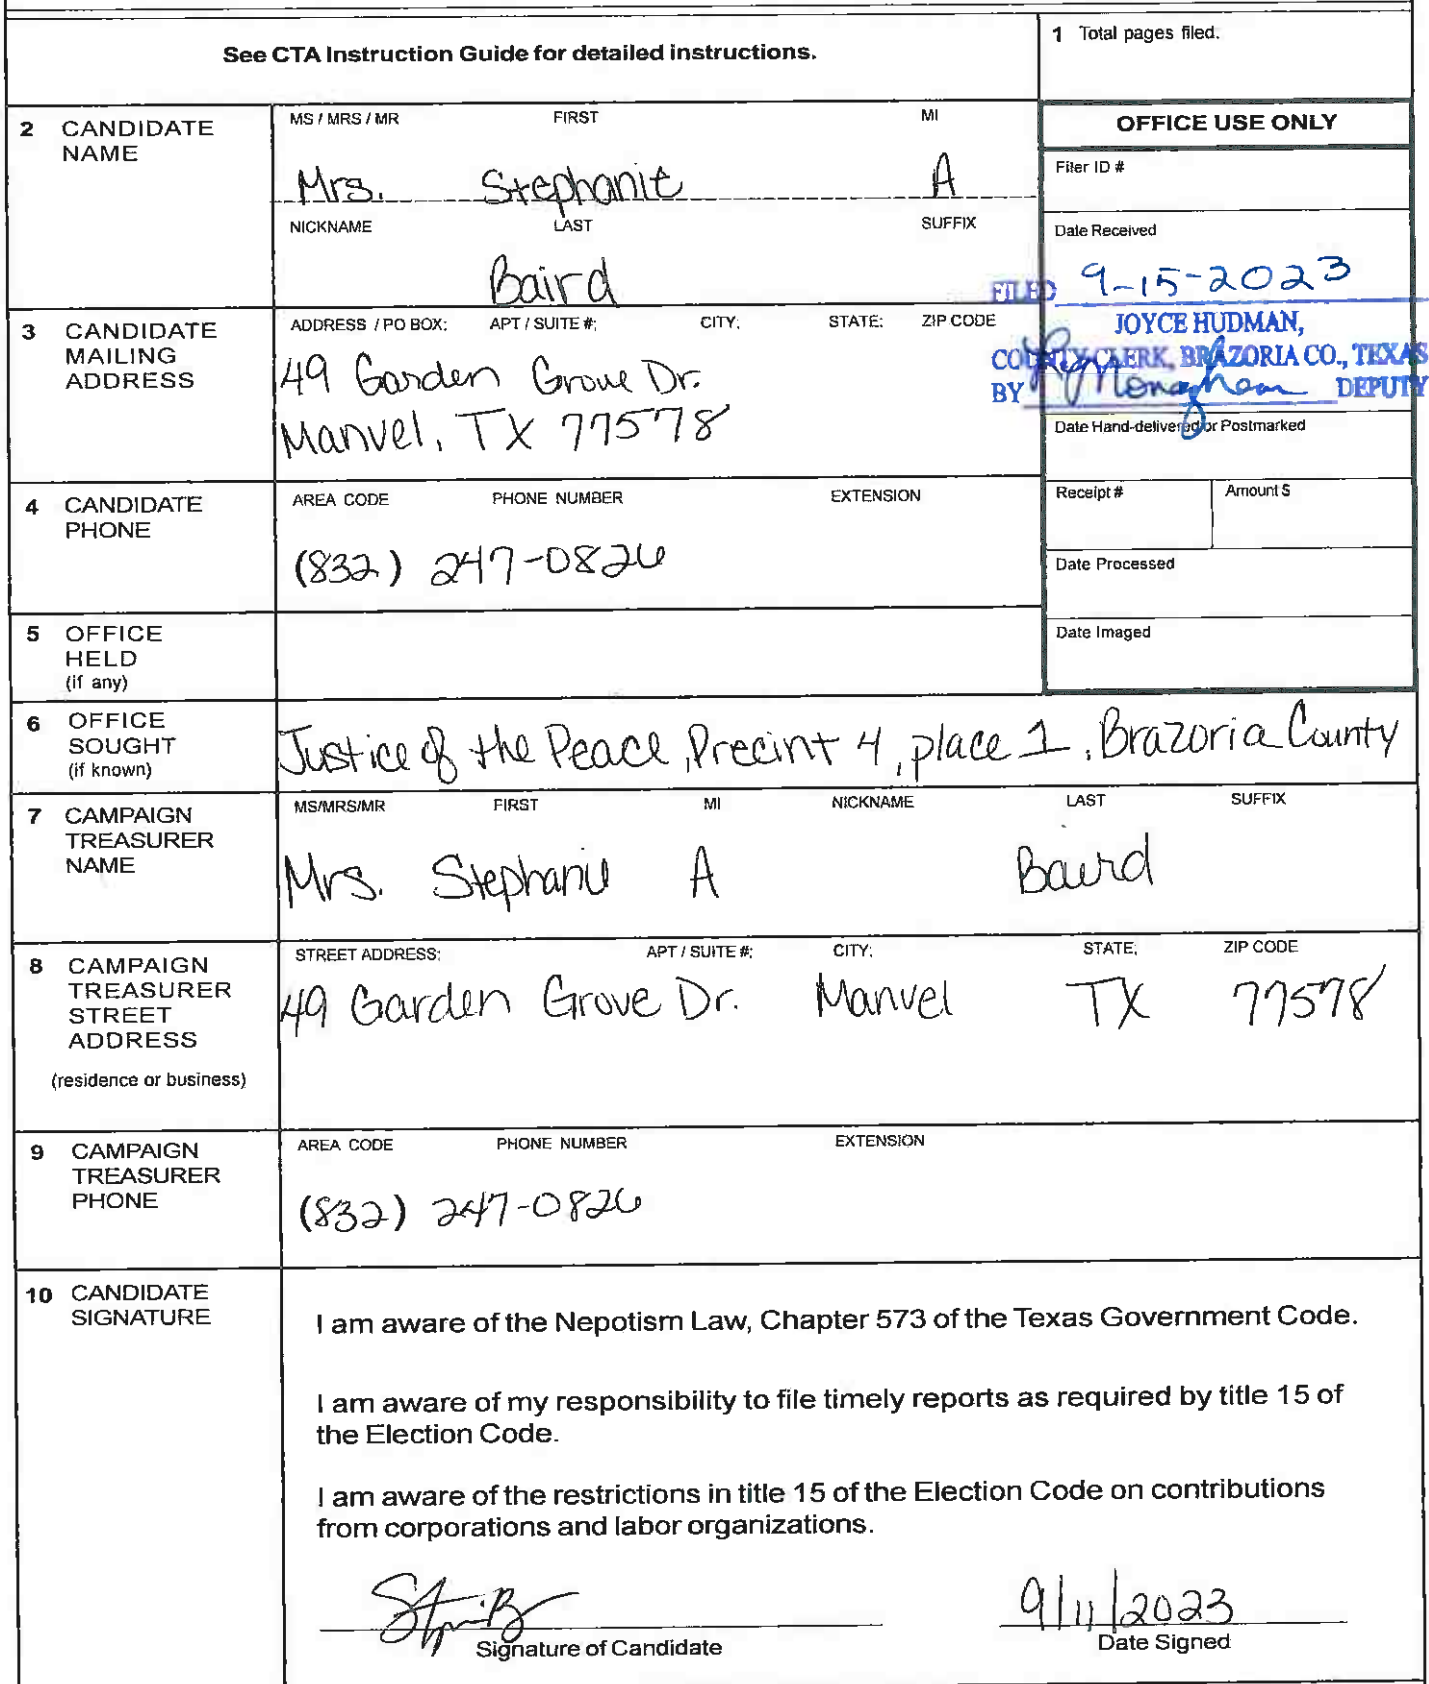 See CTA Instruction Guide for detailed instructions.
1 Total pages filed:
2 CANDIDATE NAME
MS / MRS / MR FIRST MI
Mrs. Stephanie A
NICKNAME LAST SUFFIX
Baird
OFFICE USE ONLY
Filer ID #
Date Received
FILED 9-15-2023
JOYCE HUDMAN,
COUNTY CLERK, BRAZORIA CO., TEXAS
BY Monaghan DEPUTY
Date Hand-delivered or Postmarked
Receipt # Amount $
Date Processed
Date Imaged
3 CANDIDATE MAILING ADDRESS
ADDRESS / PO BOX; APT / SUITE #; CITY; STATE; ZIP CODE
49 Garden Grove Dr.
Manvel, TX 77578
4 CANDIDATE PHONE
AREA CODE PHONE NUMBER EXTENSION
(832) 247-0826
5 OFFICE HELD (if any)
6 OFFICE SOUGHT (if known)
Justice of the Peace, Precint 4, place 1, Brazoria County
7 CAMPAIGN TREASURER NAME
MS/MRS/MR FIRST MI NICKNAME LAST SUFFIX
Mrs. Stephanie A Baird
8 CAMPAIGN TREASURER STREET ADDRESS
(residence or business)
STREET ADDRESS; APT / SUITE #; CITY; STATE; ZIP CODE
49 Garden Grove Dr. Manvel TX 77578
9 CAMPAIGN TREASURER PHONE
AREA CODE PHONE NUMBER EXTENSION
(832) 247-0826
10 CANDIDATE SIGNATURE
I am aware of the Nepotism Law, Chapter 573 of the Texas Government Code.
I am aware of my responsibility to file timely reports as required by title 15 of
the Election Code.
I am aware of the restrictions in title 15 of the Election Code on contributions
from corporations and labor organizations.
9/11/2023
Signature of Candidate Date Signed